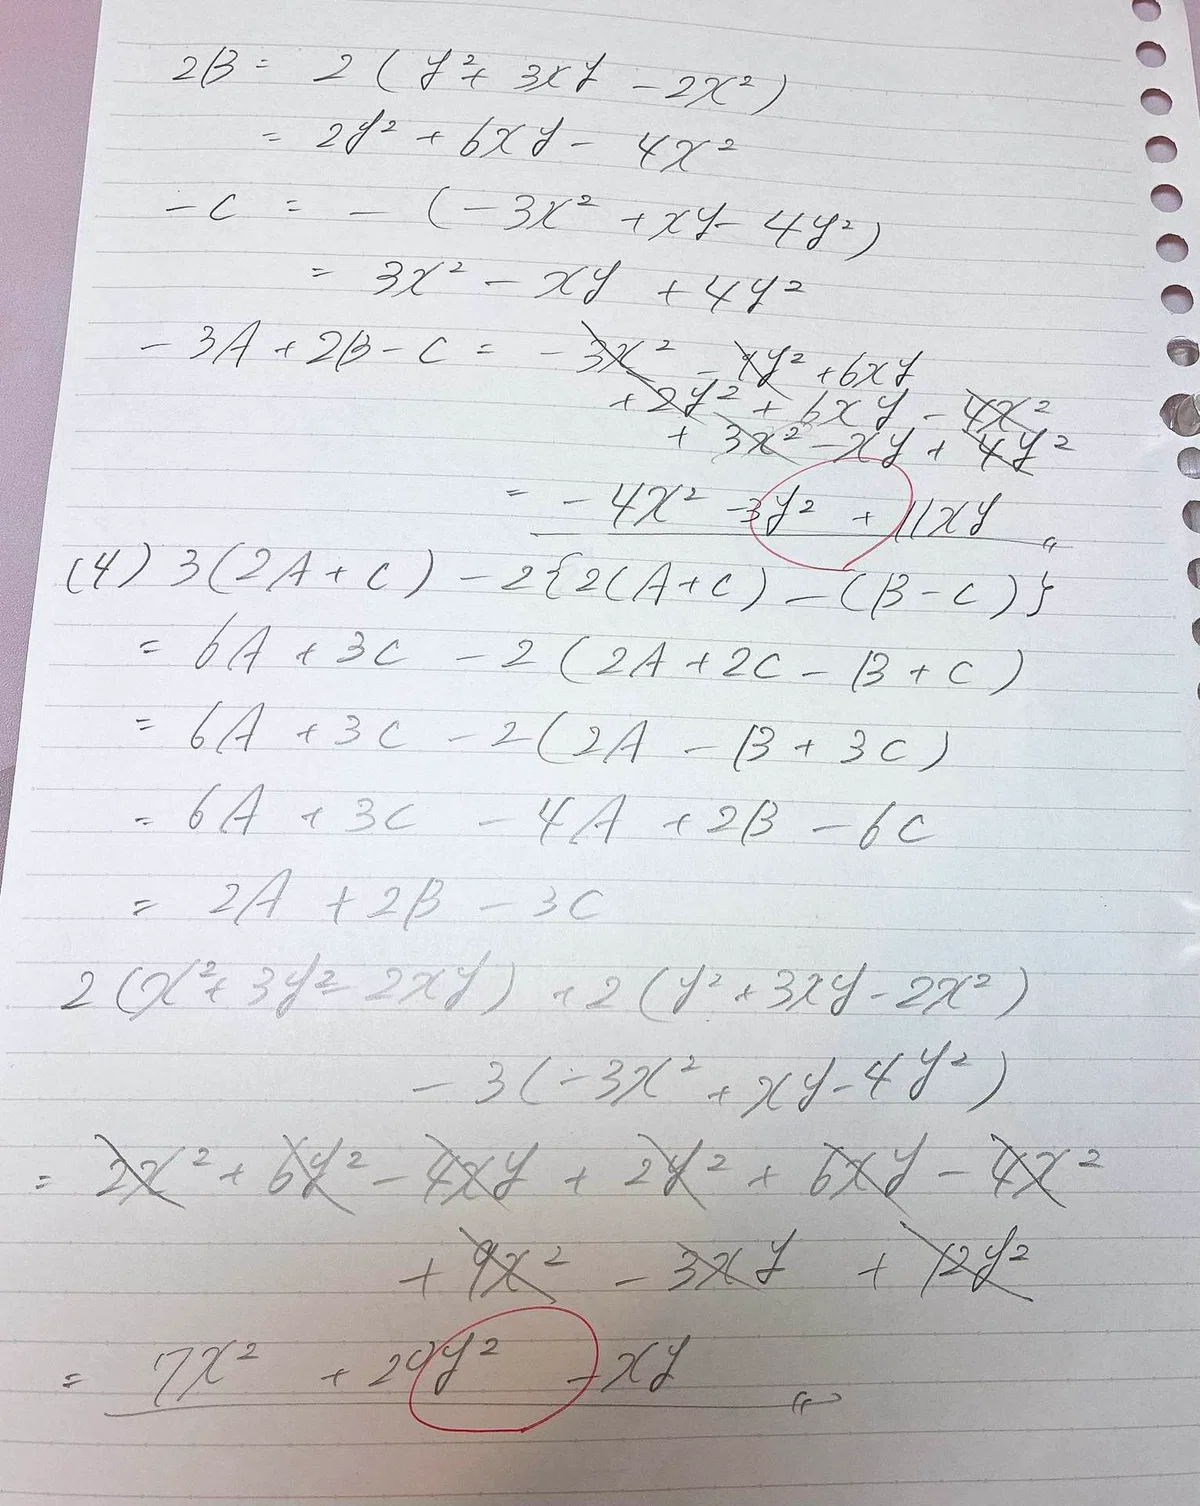 2B = 2 ( y² + 3xy - 2x² )
= 2y² + 6xy - 4x²
-C = - ( -3x² + xy - 4y² )
= 3x² - xy + 4y²
-3A + 2B - C = -3x² - 9y² + 6xy
+ 2y² + 6xy - 4x²
+ 3x² - xy + 4y²
= - 4x² - 3y² + 11xy
(4) 3(2A + C) - 2{2(A + C) - (B - C)}
= 6A + 3C - 2 (2A + 2C - B + C)
= 6A + 3C - 2(2A - B + 3C)
= 6A + 3C - 4A + 2B - 6C
= 2A + 2B - 3C
2 (x² + 3y² - 2xy) + 2 (y² + 3xy - 2x²)
- 3(-3x² + xy - 4y²)
= 2x² + 6y² - 4xy + 2y² + 6xy - 4x²
+ 9x² - 3xy + 12y²
= 7x² + 20y² - xy